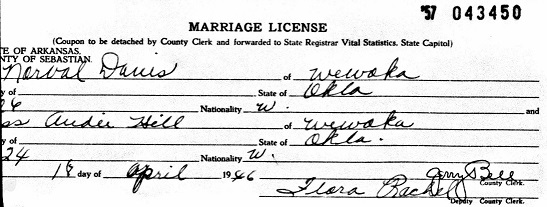 '57 043450
MARRIAGE LICENSE
(Coupon to be detached by County Clerk and forwarded to State Registrar Vital Statistics. State Capitol)
TE OF ARKANSAS.
NTY OF SEBASTIAN.
Norval Davis of Wewoka
y of State of Okla
26 Nationality W. and
ss Audie Hill of Wewoka
y of State of Okla.
24 Nationality W.
18 day of April 1946
Jerry Bell
County Clerk.
Flora Rachel
Deputy County Clerk.